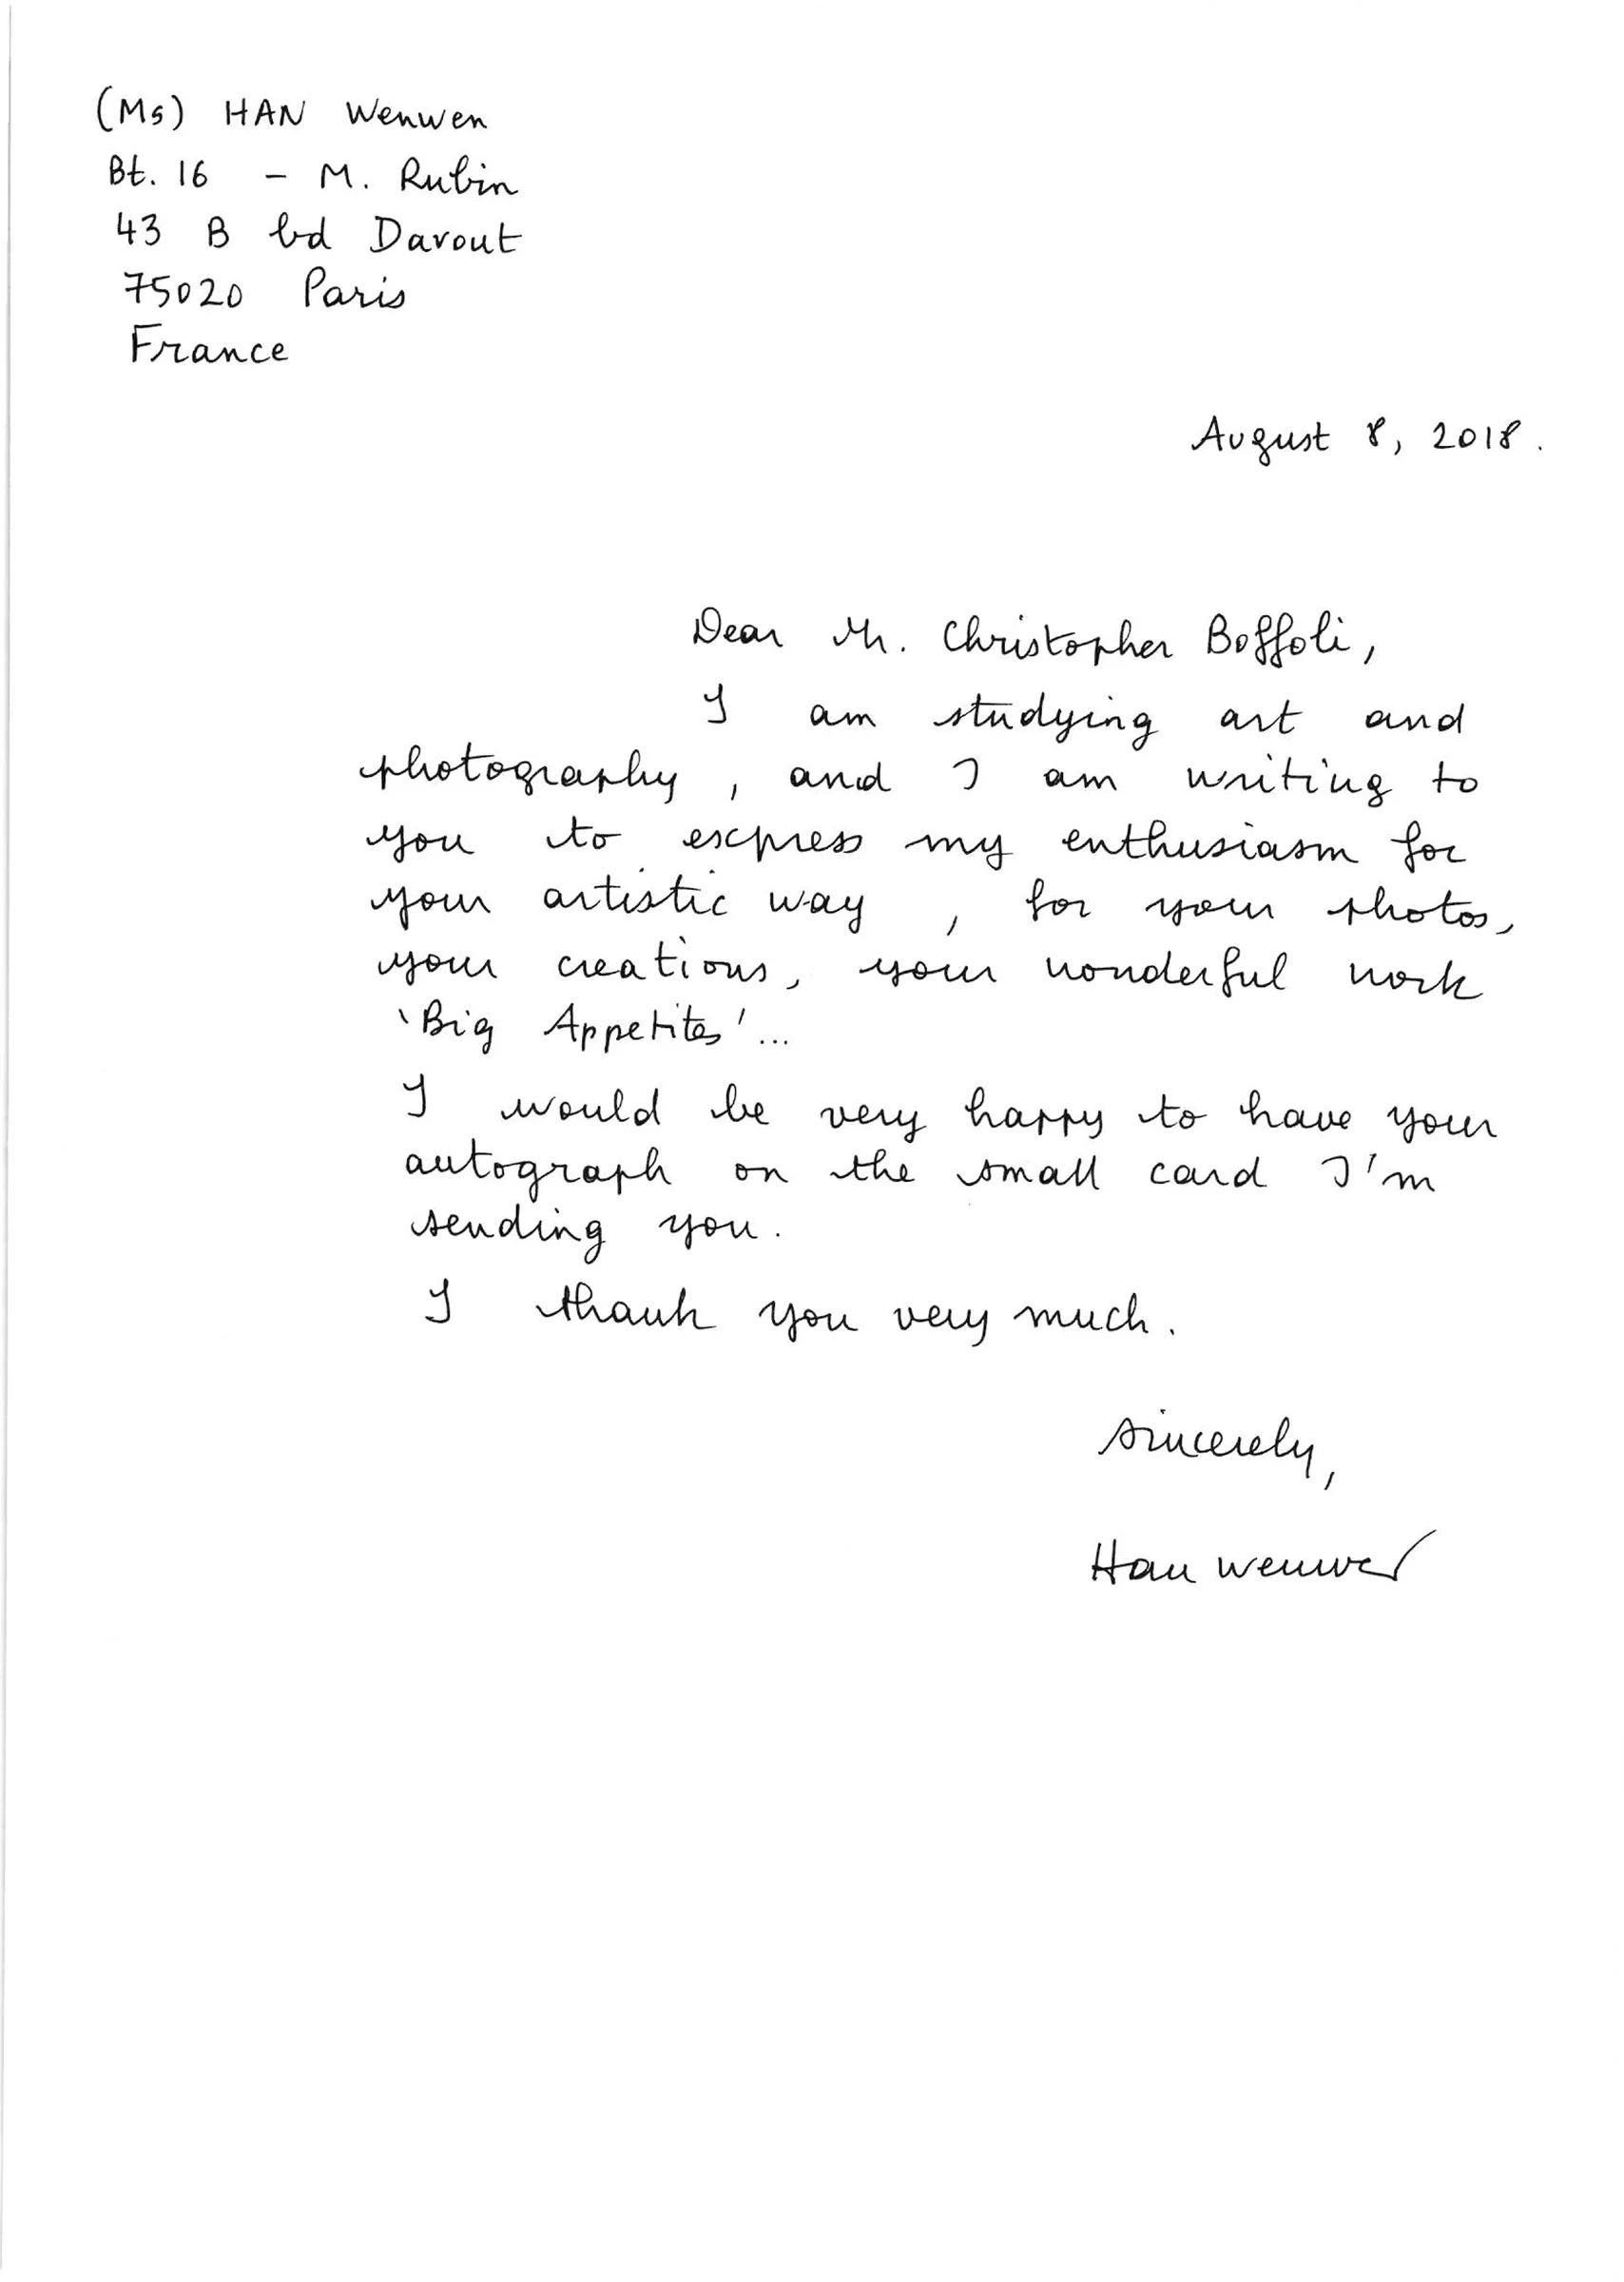 (Ms) HAN Wenwen
Bt. 16 - M. Rubin
43 B bd Davout
75020 Paris
France
August 8, 2018.
Dear Mr. Christopher Boffoli,
I am studying art and
photography, and I am writing to
you to express my enthusiasm for
your artistic way, for your photos,
your creations, your wonderful work
'Big Appetites'...
I would be very happy to have your
autograph on the small card I'm
sending you.
I thank you very much.
Sincerely,
Han Wenwen